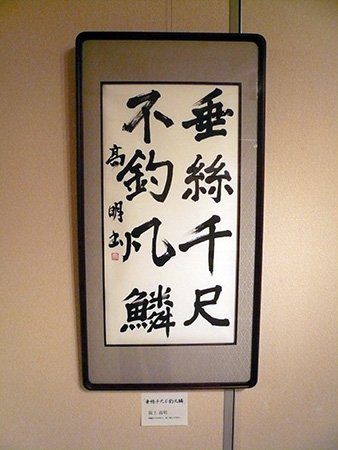 垂絲千尺
不釣凡鱗
高明書
垂絲千尺不釣凡鱗